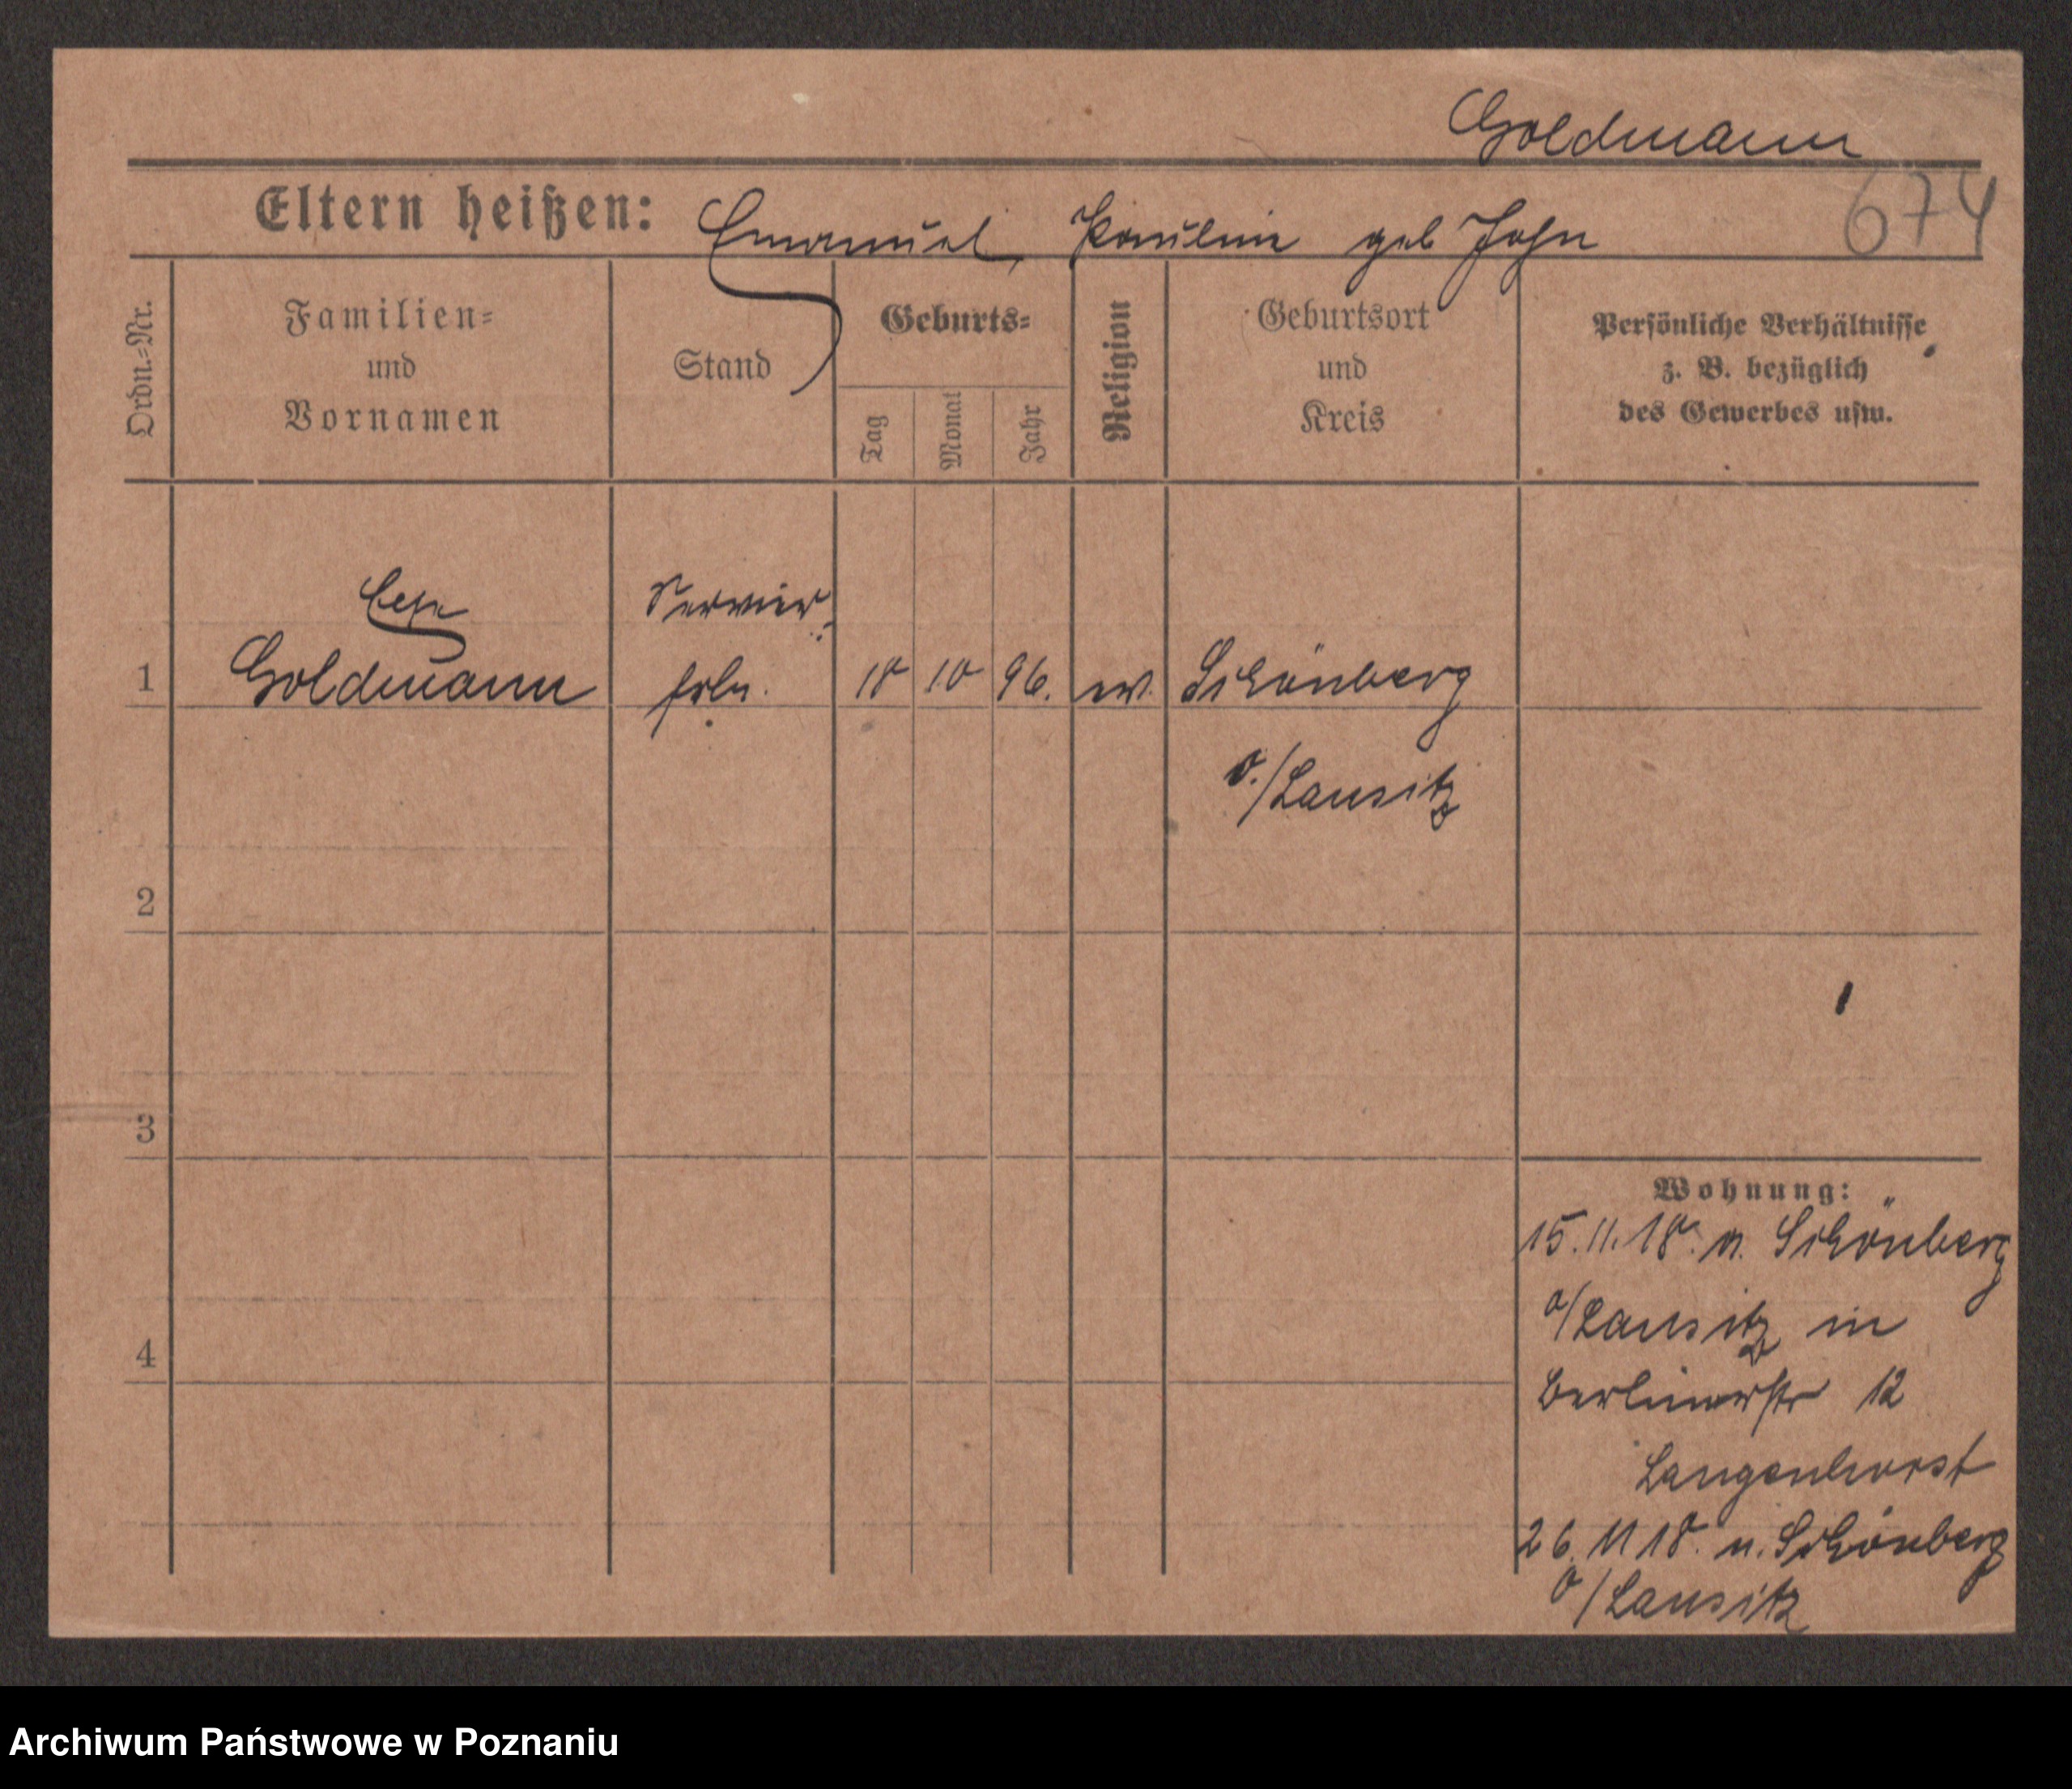 Goldmann
674
Eltern heißen: Emanuel, Pauline geb John
Ordn.=Nr.
Familien=
und
Vornamen
Stand
Geburts=
Tag
Monat
Jahr
Religion
Geburtsort
und
Kreis
Persönliche Verhältnisse
z. B. bezüglich
des Gewerbes usw.
Servier
1 Goldmann frln. 18 10 96. ev. Schönberg
O./Lausitz
2
3
4
Wohnung:
15.11.18. v. Schönberg
O/Lausitz in
Berlinerstr 12
Langenhorst
26.11 18. n. Schönberg
O/Lausitz
Archiwum Państwowe w Poznaniu